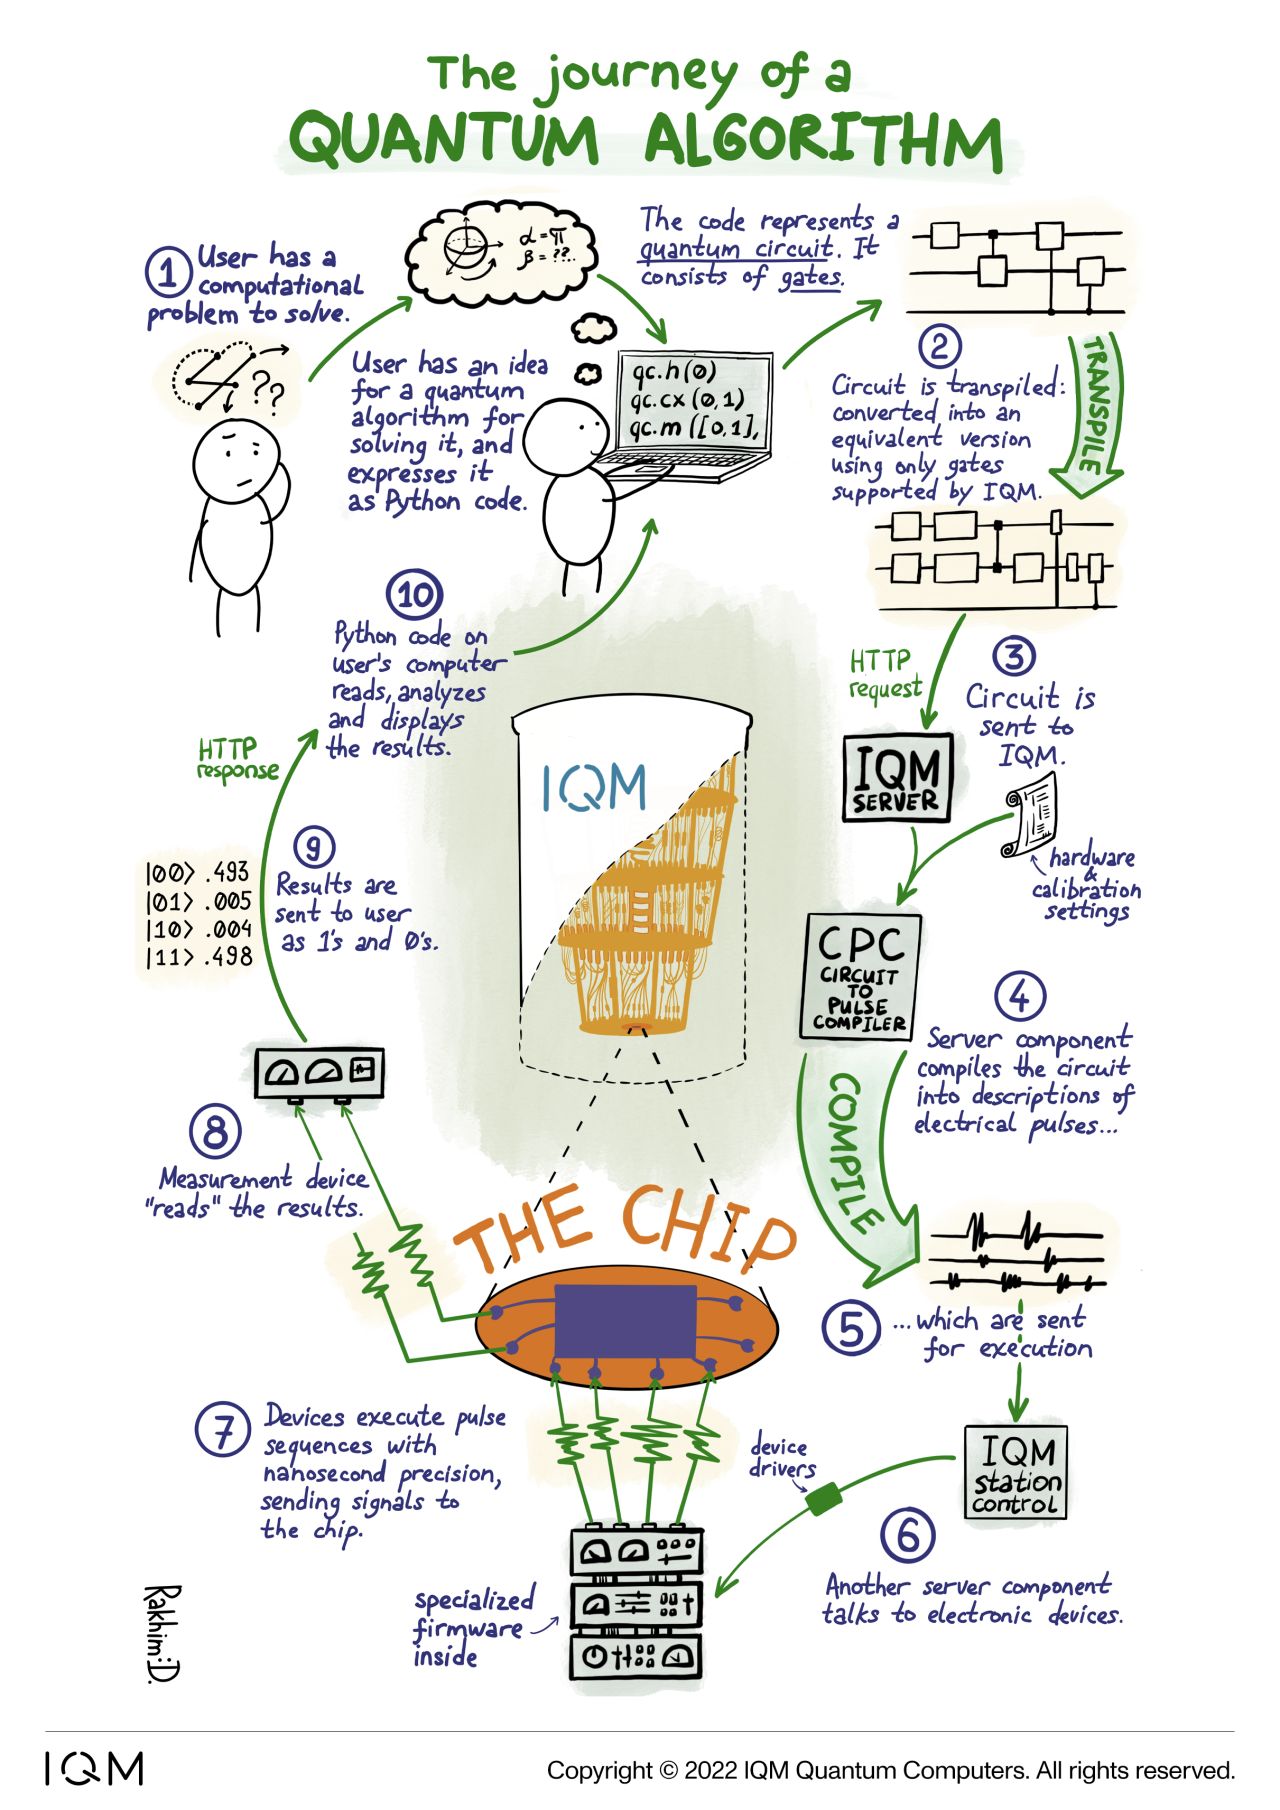 The journey of a
QUANTUM ALGORITHM
1 User has a
computational
problem to solve.
??
α=π
β=??..
User has an idea
for a quantum
algorithm for
solving it, and
expresses it
as Python code.
qc.h(0)
qc.cx(0,1)
qc.m([0,1],
The code represents a
quantum circuit. It
consists of gates.
2
Circuit is transpiled:
converted into an
equivalent version
using only gates
supported by IQM.
TRANSPILE
HTTP
request
3
Circuit is
sent to
IQM.
IQM
SERVER
hardware
&
calibration
settings
CPC
CIRCUIT
TO
PULSE
COMPILER
4
Server component
compiles the circuit
into descriptions of
electrical pulses...
COMPILE
5 ...which are sent
for execution
IQM
station
control
6
Another server component
talks to electronic devices.
device
drivers
specialized
firmware
inside
7 Devices execute pulse
sequences with
nanosecond precision,
sending signals to
the chip.
THE CHIP
IQM
8
Measurement device
"reads" the results.
9
Results are
sent to user
as 1's and 0's.
|00> .493
|01> .005
|10> .004
|11> .498
HTTP
response
10
Python code on
user's computer
reads, analyzes
and displays
the results.
Rakhim:D.
IQM
Copyright © 2022 IQM Quantum Computers. All rights reserved.